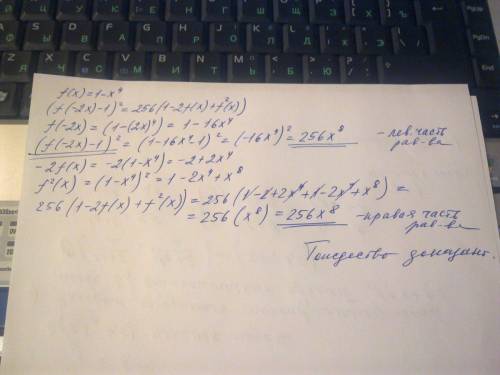 f(x)=1-x⁴
(f(-2x)-1)²=256(1-2f(x)+f²(x))
f(-2x)=(1-(2x)⁴)=1-16x⁴
(f(-2x)-1)²=(1-16x⁴-1)²=(-16x⁴)²=256x⁸ - лев. часть рав-ва
-2f(x)=-2(1-x⁴)=-2+2x⁴
f²(x)=(1-x⁴)²=1-2x⁴+x⁸
256(1-2f(x)+f²(x))=256(1-2+2x⁴+1-2x⁴+x⁸)=
=256(x⁸)=256x⁸ -правая часть рав-ва
Тождество доказано.